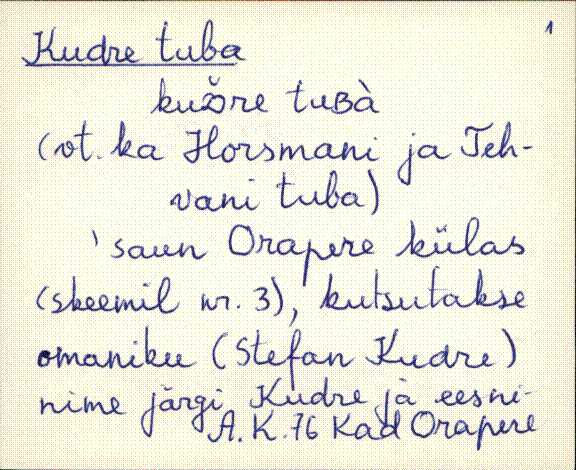 1
Kudre tuba
kuδre tuʙà
(vt. ka Horsmani ja Teh-
vani tuba)
'saun Orapere külas
(skeemil nr. 3), kutsutakse
omaniku (Stefan Kudre)
nime järgi Kudre ja eesni-
A. K. 76 Kad Orapere